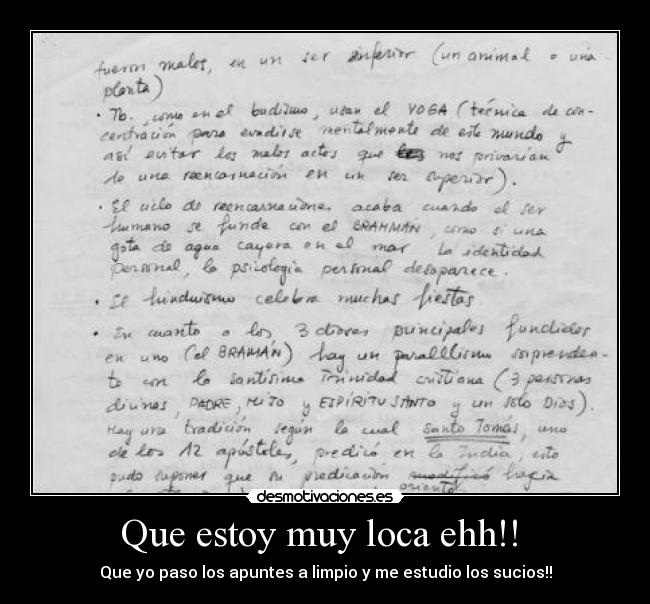 fueron malos, en un ser inferior (un animal o una
planta)
• Tb., como en el budismo, usan el YOGA (técnica de con-
centración para evadirse mentalmente de este mundo y
así evitar los malos actos que nos privarían
de una reencarnación en un ser superior).
• El ciclo de reencarnaciones acaba cuando el ser
humano se funde con el BRAHMÁN, como si una
gota de agua cayera en el mar. La identidad
personal, la psicología personal desaparece.
• El hinduismo celebra muchas fiestas.
• En cuanto a los 3 dioses principales fundidos
en uno (el BRAMÁN) hay un paralelismo sorprenden-
te con la Santísima Trinidad cristiana (3 personas
divinas, PADRE, HIJO y ESPÍRITU SANTO y un solo Dios).
Hay una tradición según la cual Santo Tomás, uno
de los 12 apóstoles, predicó en la India, esto
pudo suponer que su predicación modificó hacia
oriente
desmotivaciones.es
Que estoy muy loca ehh!!
Que yo paso los apuntes a limpio y me estudio los sucios!!